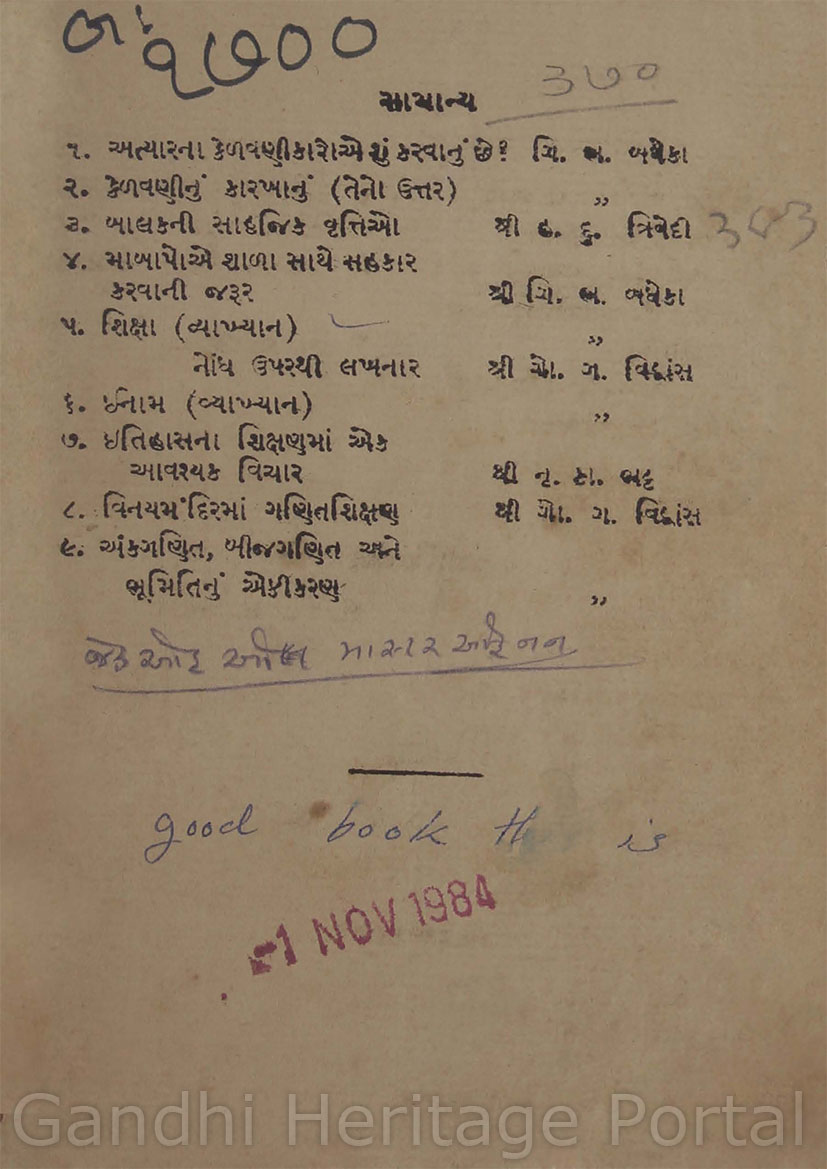 બાં
૧૭૦૦
૩૭૦
સામાન્ય
૧. અત્યારના કેળવણીકારોએ શું કરવાનું છે? ગિ. ભ. બધેકા
૨. કેળવણીનું કારખાનું (તેનો ઉત્તર) ,,
૩. બાલકની સાહજિક વૃત્તિઓ શ્રી હ. દુ. ત્રિવેદી
૪. માબાપોએ શાળા સાથે સહકાર
કરવાની જરૂર શ્રી ગિ. ભ. બધેકા
૫. શિક્ષા (વ્યાખ્યાન) ,,
નોંધ ઉપરથી લખનાર શ્રી ગો. ગ. વિદ્વાંસ
૬. ઈનામ (વ્યાખ્યાન) ,,
૭. ઇતિહાસના શિક્ષણમાં એક
આવશ્યક વિચાર શ્રી નૃ. કા. ભટ્ટ
૮. વિનયમંદિરમાં ગણિતશિક્ષણ શ્રી ગો. ગ. વિદ્વાંસ
૯. અંકગણિત, બીજગણિત અને
ભૂમિતિનું એકીકરણ ,,
જેક ઓફ ઓલ માસ્ટર ઓફ નન
good book is
-1 NOV 1984
Gandhi Heritage Portal